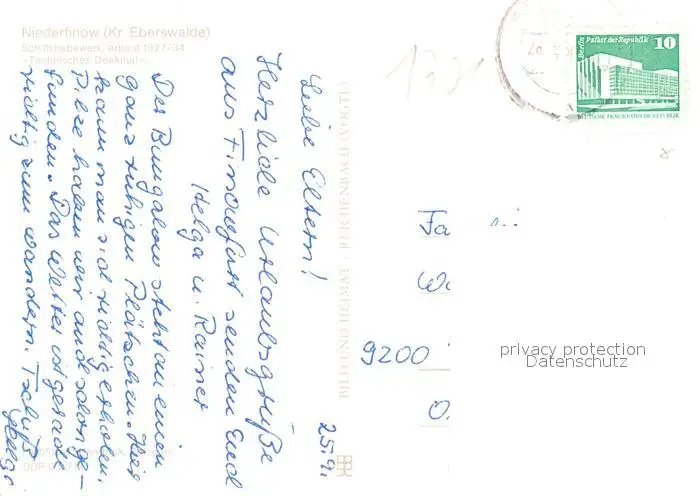 Niederfinow (Kr. Eberswalde)
Schiffshebewerk, erbaut 1927/34
-Technisches Denkmal-
25.9.
Liebe Eltern!
Herzliche Urlaubsgrüße
aus Finowfurt senden Euch
Helga u. Rainer
Der Bungalow steht an einem
ganz ruhigen Plätzchen. Hier
kann man sich richtig erholen.
Pilze haben wir auch schon ge-
funden. Das Wetter ist gerade
richtig zum wandern. Tschüß
Helga
BILD UND HEIMAT · REICHENBACH (VOGTL)
Berlin Palast der Republik 10
DEUTSCHE DEMOKRATISCHE REPUBLIK
Fa
9200
privacy protection
Datenschutz
DDR